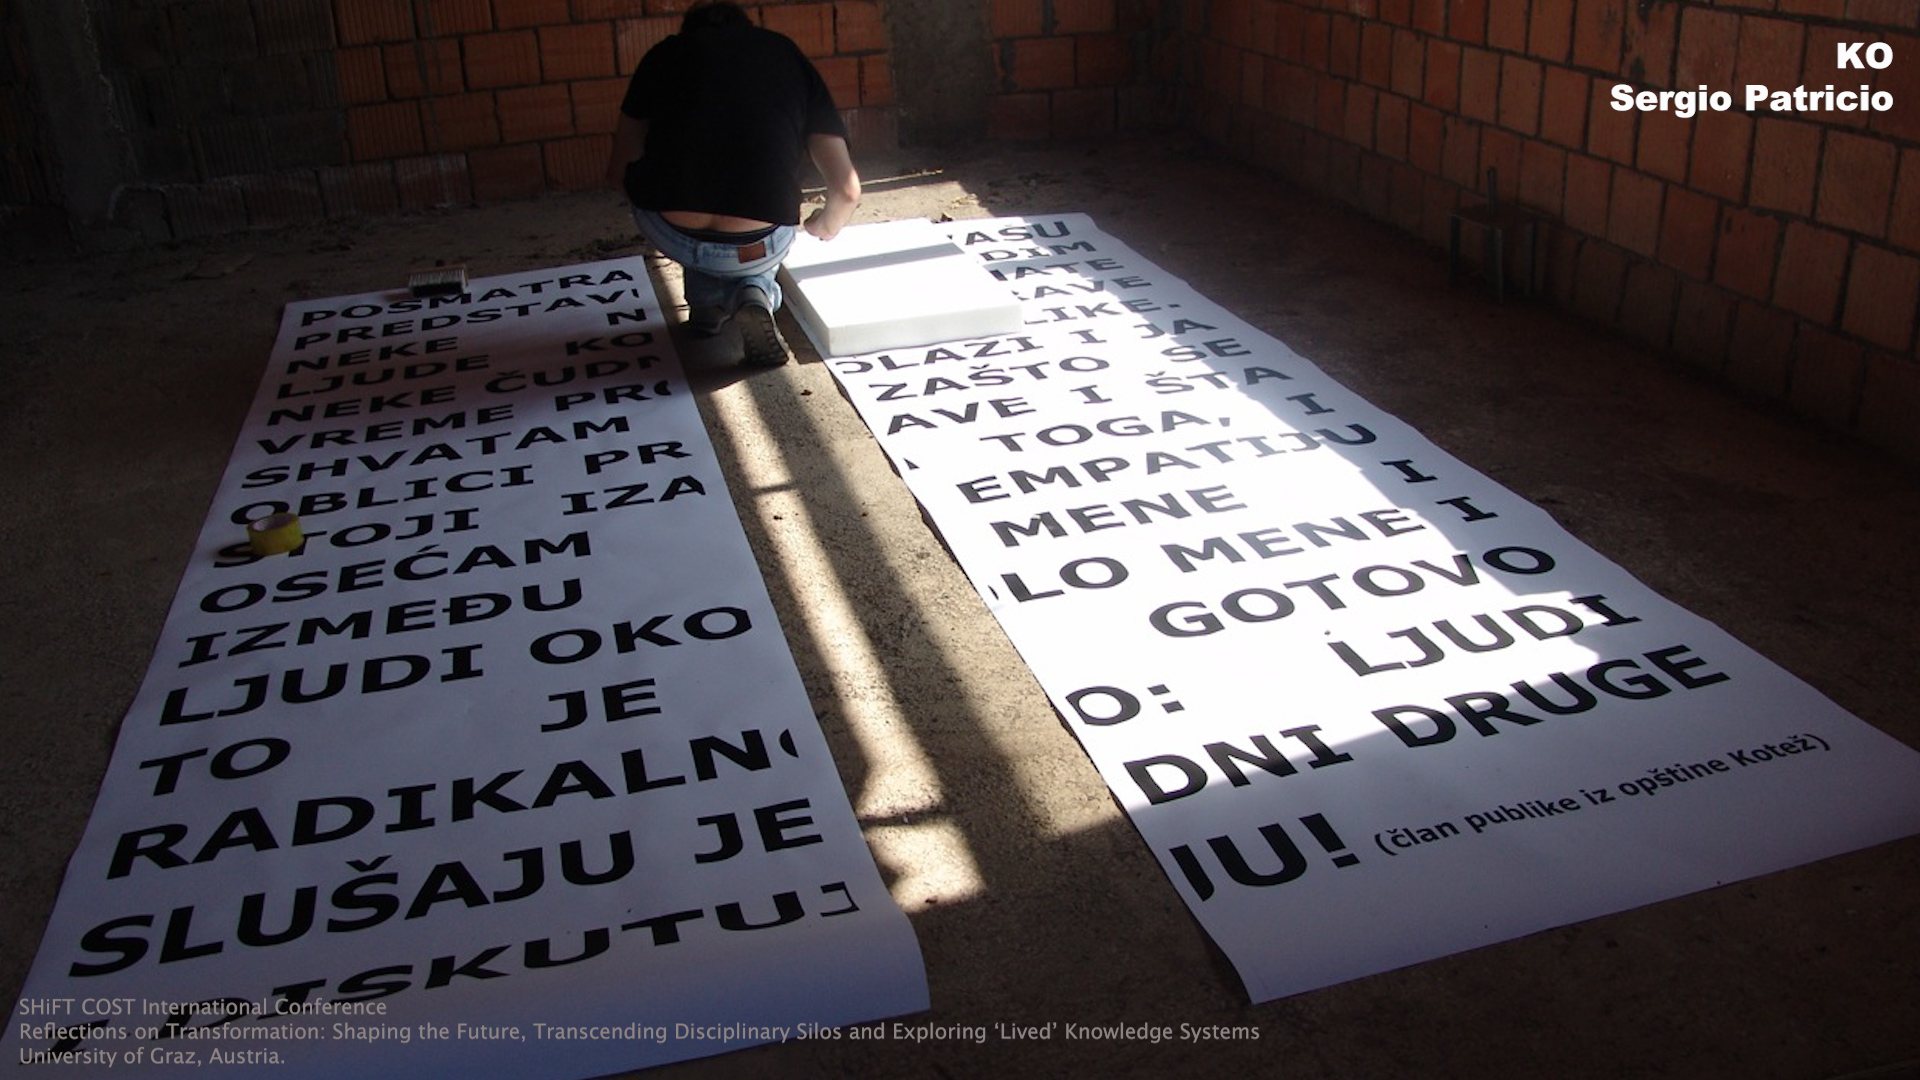 KO
Sergio Patricio
POSMATRA
PREDSTAV
NEKE N
LJUDE KO
NEKE
VREME
SHVATAM
OBLICI PR
STOJI IZA
OSEĆAM
IZMEĐU
LJUDI OKO
TO JE
RADIKALN
SLUŠAJU JE
DISKUTU
VAŠU
DIM
MATE
RAVE
LIKE.
OLAZI I JA
ZAŠTO SE
AVE I ŠTA
TOGA, I
EMPATIJU
MENE I
LO MENE I
GOTOVO
O: LJUDI
DNI DRUGE
JU! (član publike iz opštine Kotež)
SHiFT COST International Conference
Reflections on Transformation: Shaping the Future, Transcending Disciplinary Silos and Exploring ‘Lived’ Knowledge Systems
University of Graz, Austria.